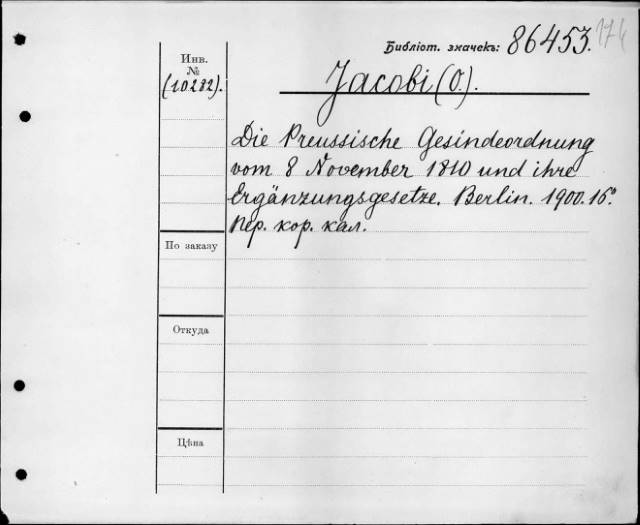 Библіот. значекъ: 86453. 174
Инв.
№
(10282).
Jacobi (O.).
Die Preussische Gesindeordnung
vom 8 November 1810 und ihre
Ergänzungsgesetze. Berlin. 1900. 16°.
Пер. кор. кал.
По заказу
Откуда
Цѣна